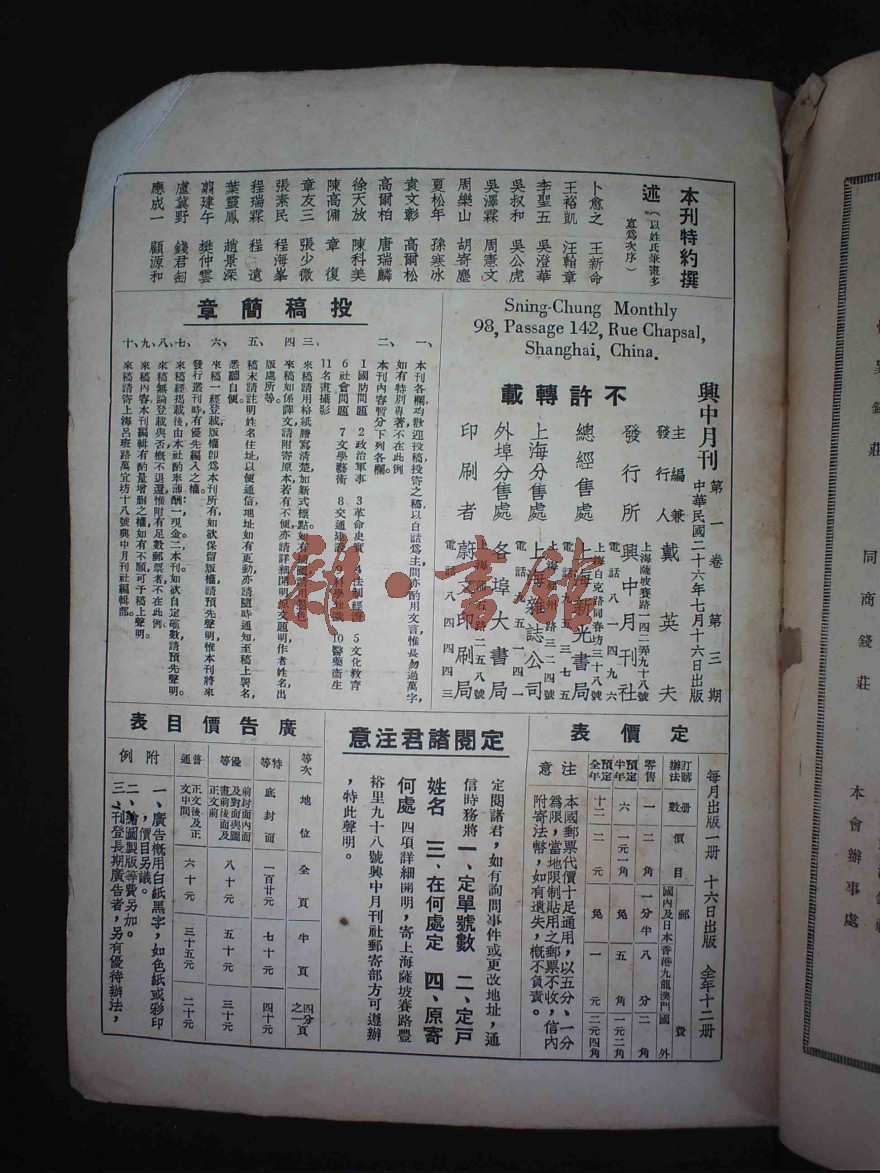 本刊特約撰
述（以姓氏筆畫多
寡為次序）
卜愈之　王新命
王裕凱　汪翰章
李聖五　吳澄華
吳叔和　吳公虎
吳澤霖　周憲文
周樂山　胡寄塵
夏松年　孫寒冰
袁文彰　高爾松
高爾柏　唐瑞麟
徐天放　陳科美
陳高傭　章復
章友三　張少微
張素民　程海峯
程瑞霖　程遠
葉靈鳳　趙景深
翦建午　樊仲雲
盧冀野　錢君匋
應成一　顧源和
Sning-Chung Monthly
98, Passage 142, Rue Chapsal,
Shanghai, China.
不許轉載
興中月刊　第一卷　第三期
中華民國二十六年七月十六日出版
主編兼
發行人　戴英夫
發行所　興中月刊社
上海薩坡賽路一四二弄九十八號
電話八一四九六
總經售處　上海新光書局
上海白克路同春坊三十八號
電話九五三七五
上海分售處　上海雜誌公司
上海福州路三二四號
電話九五一四一
外埠分售處　各埠大書局
印刷者　蔚文印刷局
電話八四四三
投稿簡章
一、本刊各欄，均歡迎投稿，投寄之稿，以白話為主，間亦酌用文言，惟長勿過萬字，
如有特別專著，不在此例
二、本刊內容暫分下列各欄。
1國防問題　2政治軍事　3革命史實　4法制經濟　5文化教育
6社會問題　7文學藝術　8交通建設　9科學知識　10醫藥衛生
11名畫攝影
三、來稿請用格紙謄寫清楚，加新式標點，如有插圖，請用墨色
四、來稿如係譯文，請附寄原本，若有不便，亦請詳細開明原文題明，作者姓名，出
版處所等。
五、稿末請註明姓名住址，以便通信，地址如有更動，亦請隨時通知，至稿上署名，
悉聽自便。
六、來稿一經登載，版權卽為本刊所有，如欲保留版權，請預先聲明，惟本刊將來
發行叢刊時，有優先編入之權。
七、來稿經揭載後，由本社酌奉薄酬：一現金。二本刊。如欲自定確數，請預先聲明。
八、來稿無論登載與否，概不退還，惟附有足數郵票者，不在此例
九、來稿內容，本刊編輯有酌量增刪之權，如有不願，可于稿上聲明。
十、來稿請寄上海呂班路萬宜坊十八號興中月刊社編輯部
定價表
每月出版一冊　十六日出版　全年十二冊
訂購辦法　冊數　價目　郵費
國內及日本　香港九龍澳門　國外
零售　一　二角　一分半　八分　二角
預定半年　六　一元一角　免　五角　一元二角
預定全年　十二　二元　免　一元　二元四角
注意　本國郵票代價十足通用，以五分、一分
為限，當地限制貼用之郵票不收，信內
附寄法幣，如有遺失，概不負責。
定閱諸君注意
定閱諸君，如有詢問事件或更改地址，通
信時務將一、定單號數　二、定戶
姓名　三、在何處定　四、原寄
何處四項詳細開明，寄上海薩坡賽路豐
裕里九十八號興中月刊社郵寄部方可遵辦
，特此聲明。
廣告價目表
等次　地位　全頁　半頁　四分之一頁
特等　底封面　一百廿元　七十元　四十元
優等　前封面內面及對面與圖畫前後面及正文前　八十元　五十元　三十元
普通　正文後及正文中間　六十元　三十五元　二十元
附例
一、廣告概用白紙黑字，如色紙或彩印
，價目另議。
二、繪圖製版等費另加。
三、刊登長期廣告者，另有優待辦法，
同商錢莊
本會辦事處